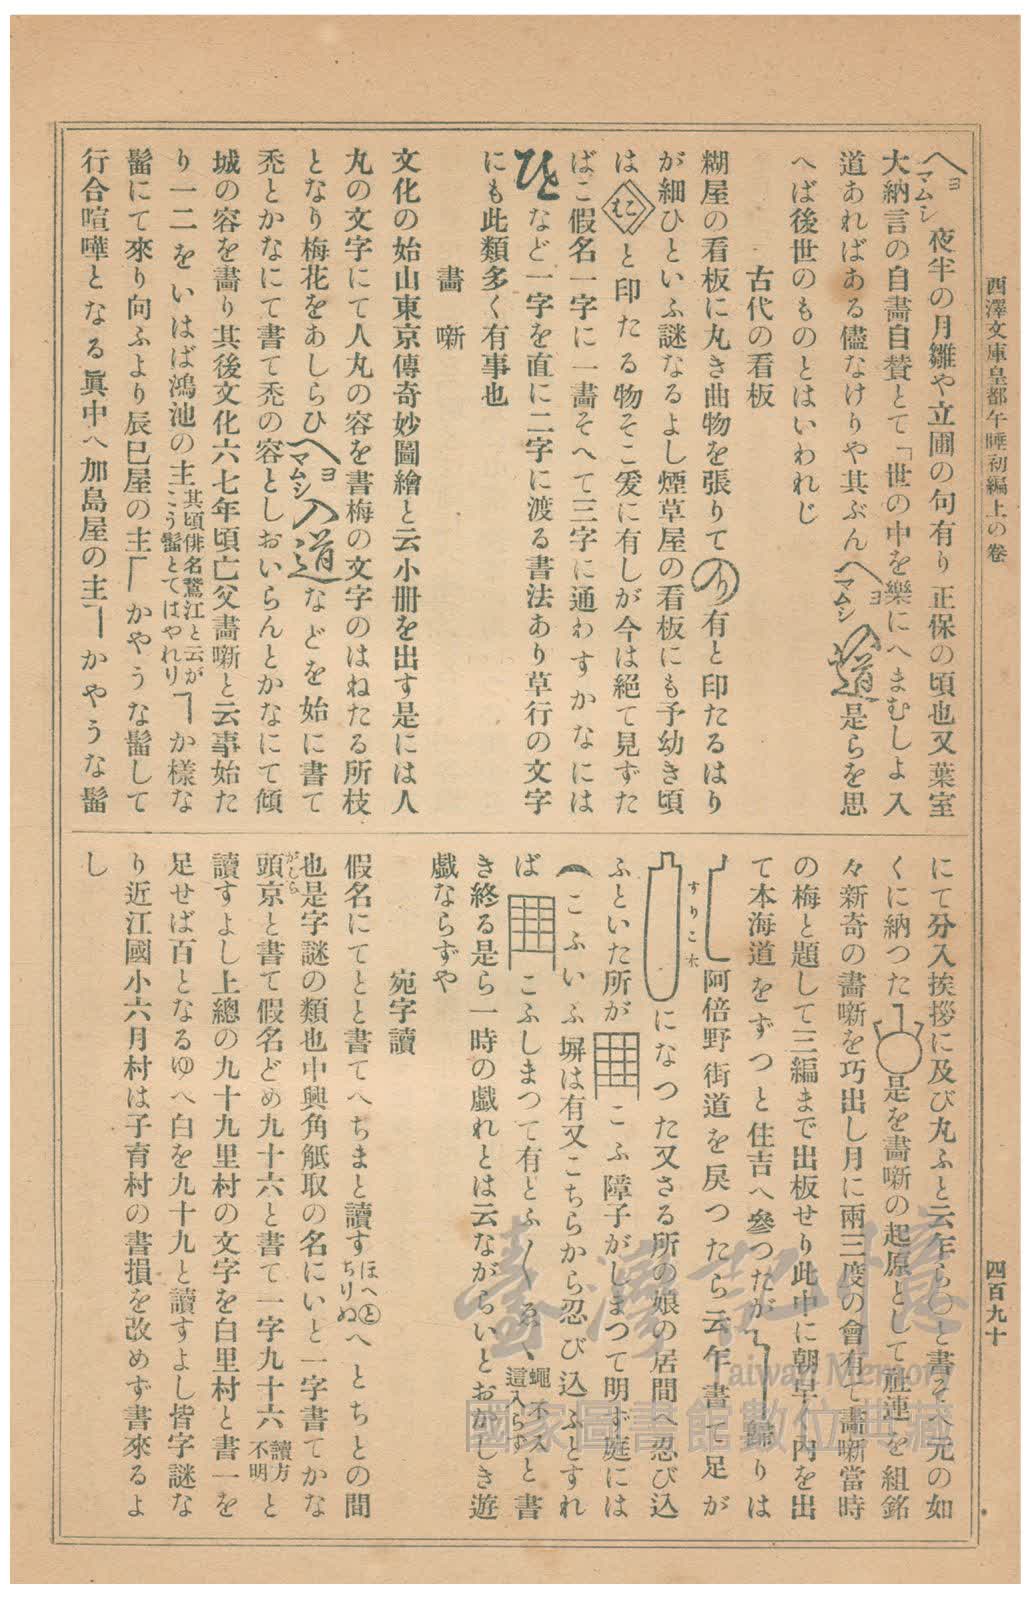 西澤文庫皇都午睡初編上の卷
四百九十
ヘマムショ夜半の月雛や立圃の句有り正保の頃也又葉室
大納言の自畵自賛とて「世の中を樂にへまむしよ入
道あればある儘なけりや其ぶんヘマムショ入道是らを思
へば後世のものとはいわれじ
古代の看板
糊屋の看板に丸き曲物を張りてのり有と印たるはり
が細ひといふ謎なるよし煙草屋の看板にも予幼き頃
はたばこと印たる物そこ爰に有しが今は絶て見ずた
ばこ假名一字に一畵そへて三字に通わすかなには
など一字を直に二字に渡る書法あり草行の文字
にも此類多く有事也
畵噺
文化の始山東京傳奇妙圖繪と云小册を出す是には人
丸の文字にて人丸の容を書梅の文字のはねたる所枝
となり梅花をあしらひヘマムショ入道などを始に書て
禿とかなにて書て禿の容としおいらんとかなにて傾
城の容を畵り其後文化六七年頃亡父畵噺と云事始た
り一二をいはば鴻池の主其頃俳名鷲江と云がこう髷とてはやれりか樣な
髷にて來り向ふより辰巳屋の主かやうな髷して
行合喧嘩となる眞中へ加島屋の主かやうな髷
にて分入挨拶に及び丸ふと云年ら〇と書そへ元の如
くに納つた是を畵噺の起原として社連を組銘
々新奇の畵噺を巧出し月に兩三度の會有て畵噺當時
の梅と題して三編まで出板せり此中に朝早く内を出
て本海道をずつと住吉へ參つたが歸りは
阿倍野街道を戻つたら云乍書て足が
すりこ木になつた又さる所の娘の居間へ忍び込
ふといた所がこふ障子がしまつて明ず庭には
こふいふ塀は有又こちらから忍び込ふとすれ
ばこふしまつて有どふ〱ゑゝ蠅不入這入らずと書
き終る是ら一時の戯れとは云ながらいとおかしき遊
戯ならずや
宛字讀
假名にてとと書てへちまと讀すほへとちりぬへとちとの間
也是字謎の類也中興角觝取の名にいと一字書てかな
頭がしら京と書て假名どめ九十六と書て一字九十六讀方不明と
讀すよし上總の九十九里村の文字を白里村と書一を
足せば百となるゆへ白を九十九と讀すよし皆字謎な
り近江國小六月村は子育村の書損を改めず書來るよ
し
臺灣記憶
Taiwan Memory
國家圖書館數位典藏